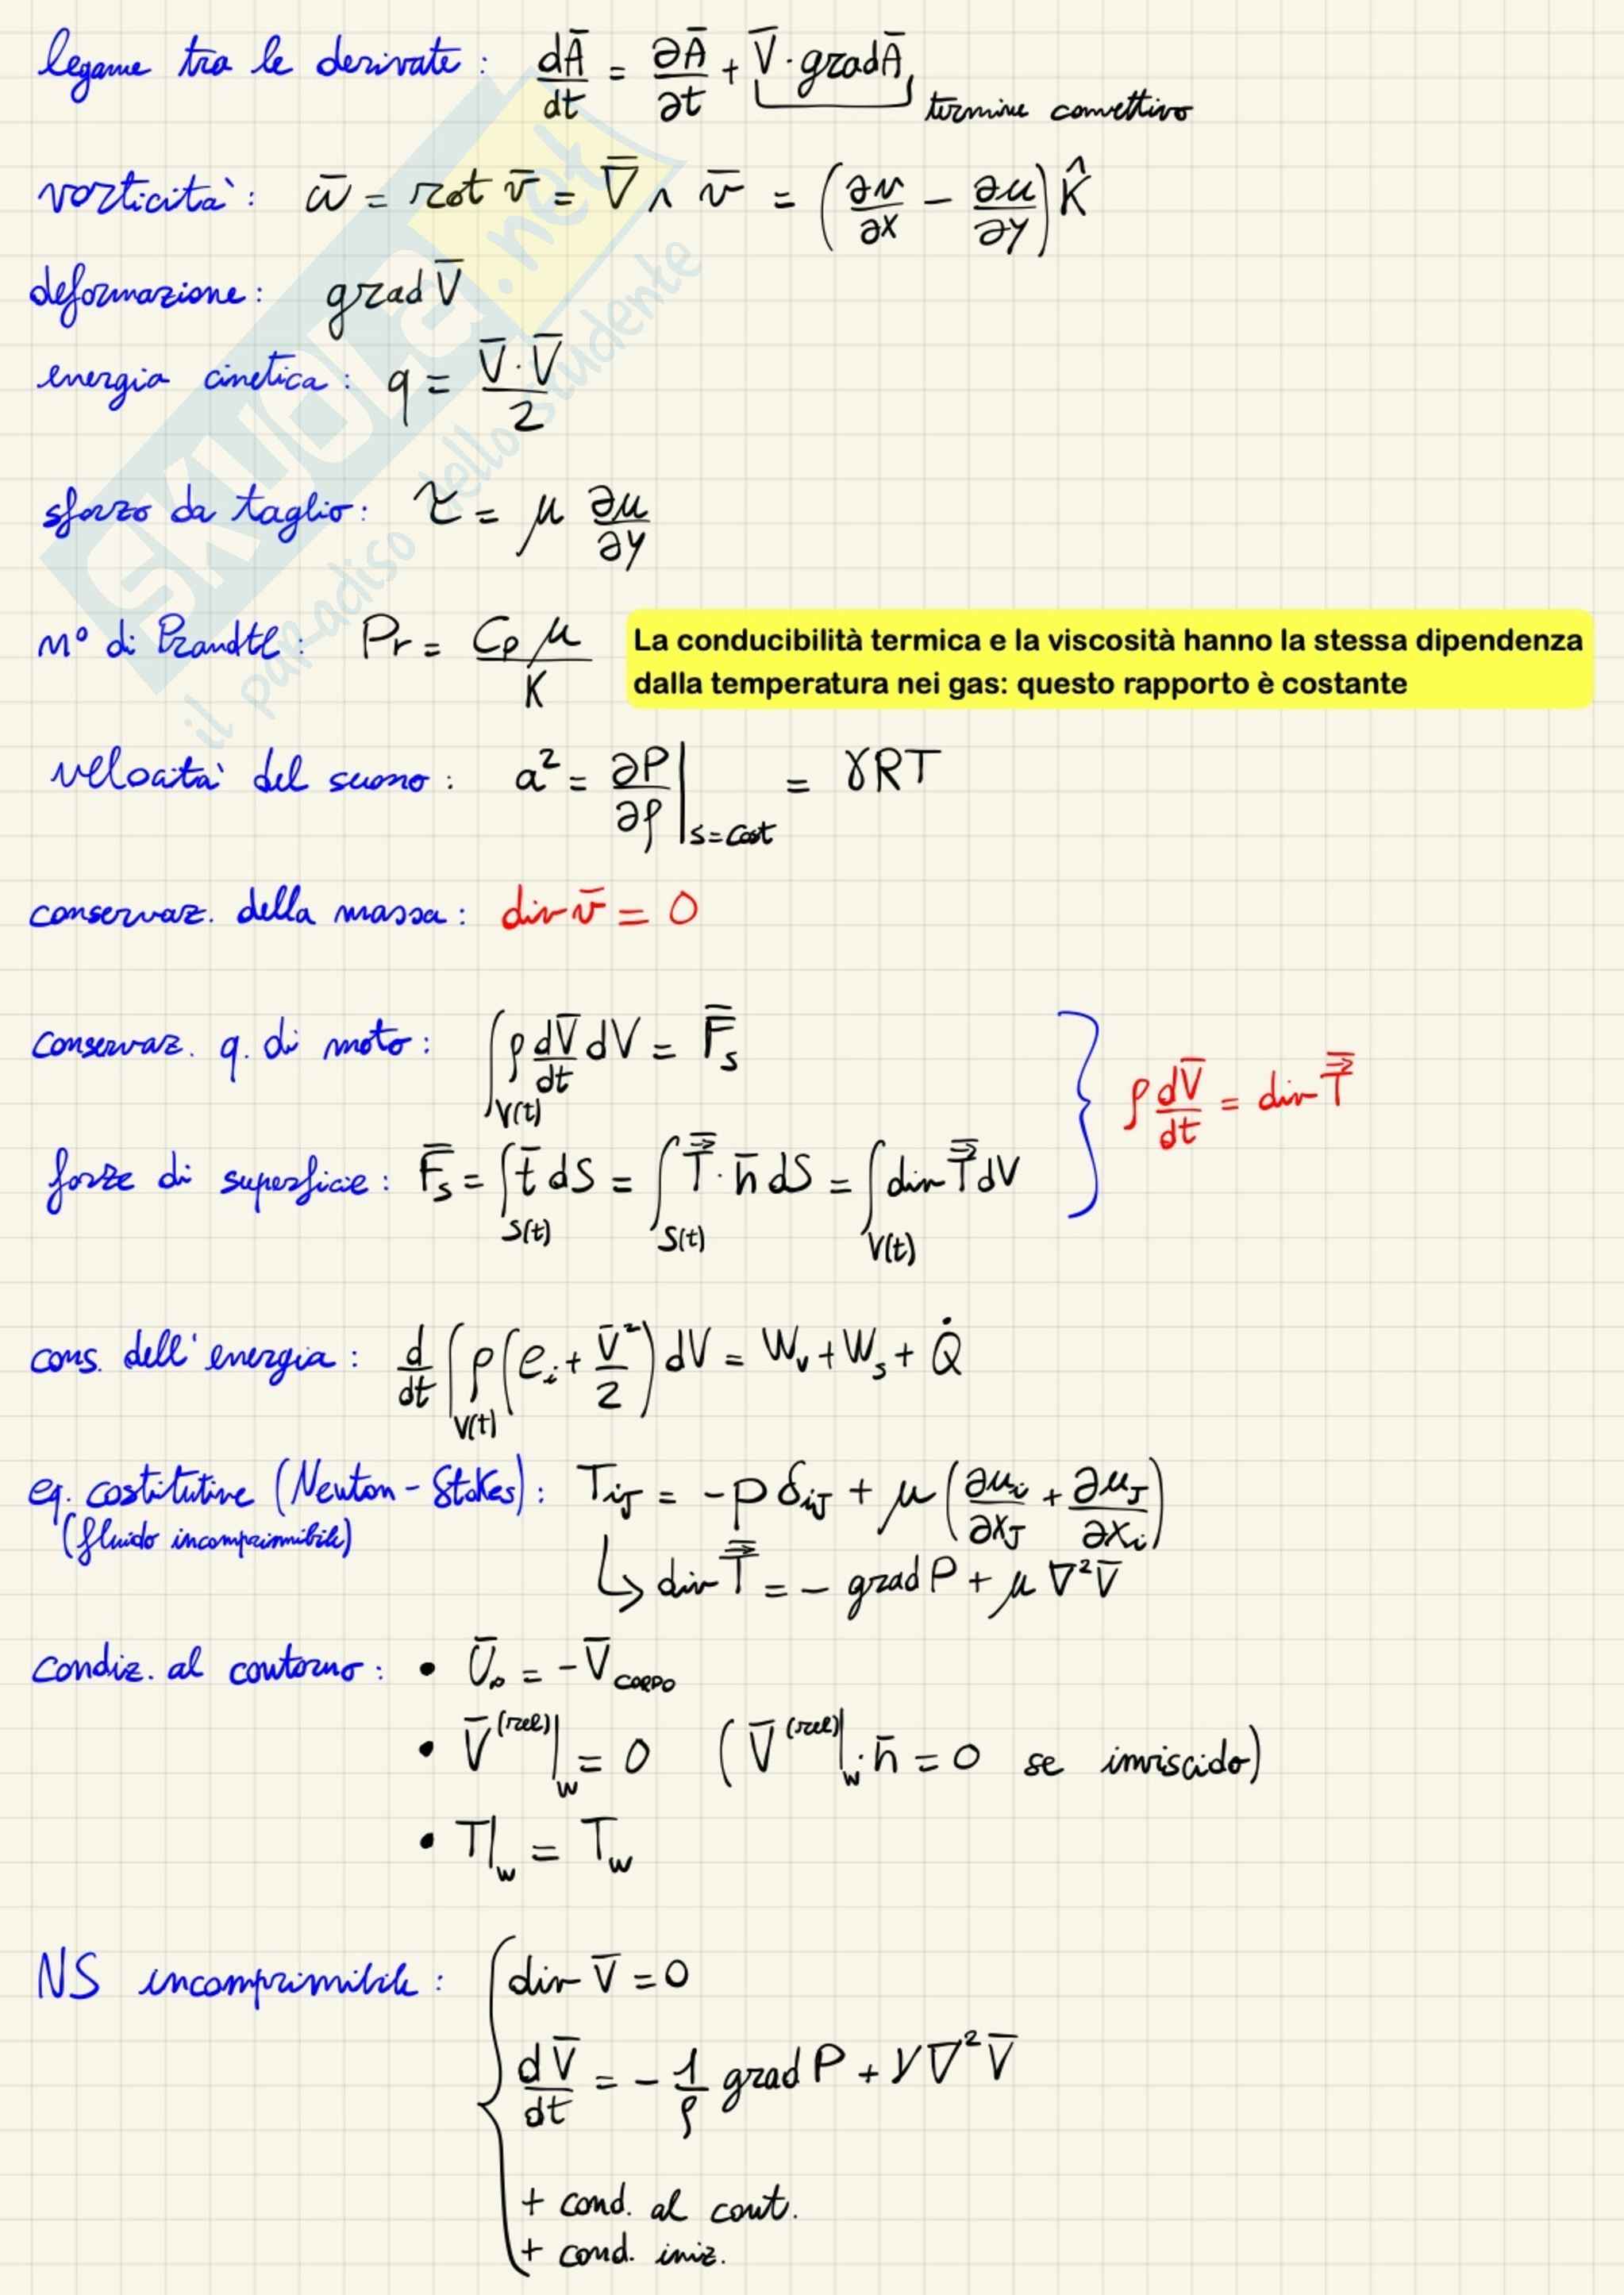 legame tra le derivate : dĀ/dt = ∂Ā/∂t + V̄ · gradĀ, termine convettivo
vorticità : ω̄ = rot v̄ = ∇̄ ∧ v̄ = (∂v/∂x − ∂u/∂y) K̂
deformazione : grad V̄
energia cinetica : q = V̄·V̄/2
sforzo da taglio : τ = μ ∂u/∂y
n° di Prandtl : Pr = Cp μ/K
La conducibilità termica e la viscosità hanno la stessa dipendenza
dalla temperatura nei gas: questo rapporto è costante
velocità del suono : a² = ∂P/∂ρ|s=cost = γRT
conservaz. della massa : div v̄ = 0
conservaz. q. di moto : ∫V(t) ρ dV̄/dt dV = F̄s
ρ dV̄/dt = div T̿
forze di superficie : F̄s = ∫S(t) t̄ dS = ∫S(t) T̿ · n̄ dS = ∫V(t) div T̿ dV
cons. dell'energia : d/dt ∫V(t) ρ(ei + V̄²/2) dV = Wv + Ws + Q̇
eq. costitutive (Newton - Stokes) : Tij = −p δij + μ (∂ui/∂xj + ∂uj/∂xi)
(fluido incomprimibile)
↳ div T̿ = − grad P + μ ∇²V̄
condiz. al contorno : • = −V̄CORPO
• V̄(rel)|w = 0 (V̄(rel)|w · n̄ = 0 se inviscido)
• T|w = Tw
NS incomprimibile : div V̄ = 0
dV̄/dt = − 1/ρ grad P + ν∇²V̄
+ cond. al cont.
+ cond. iniz.
SKUOLA.net
il paradiso dello studente